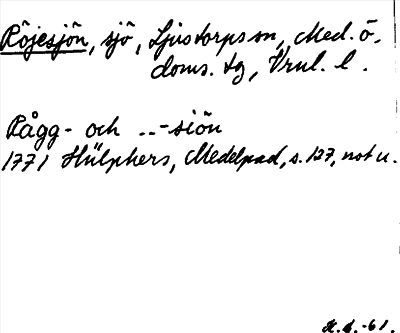 Röjesjön, sjö, Ljustorps sn, Med. ö.
doms. tg, Vrnl. l.
Rågg- och ..-siön
1771 Hülphers, Medelpad, s. 127, not u.
H. C. -61.